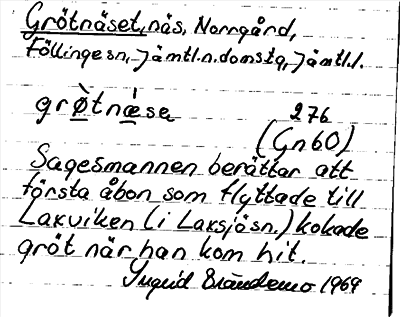 Grötnäset, näs, Norrgård,
Föllinge sn, Jämtl.n.domstg, Jämtl.l.
grø̀tnǽsa
276
(Gn60)
Sagesmannen berättar att
första åbon som flyttade till
Laxviken (i Laxsjö sn.) kokade
gröt när han kom hit.
Ingrid 1969